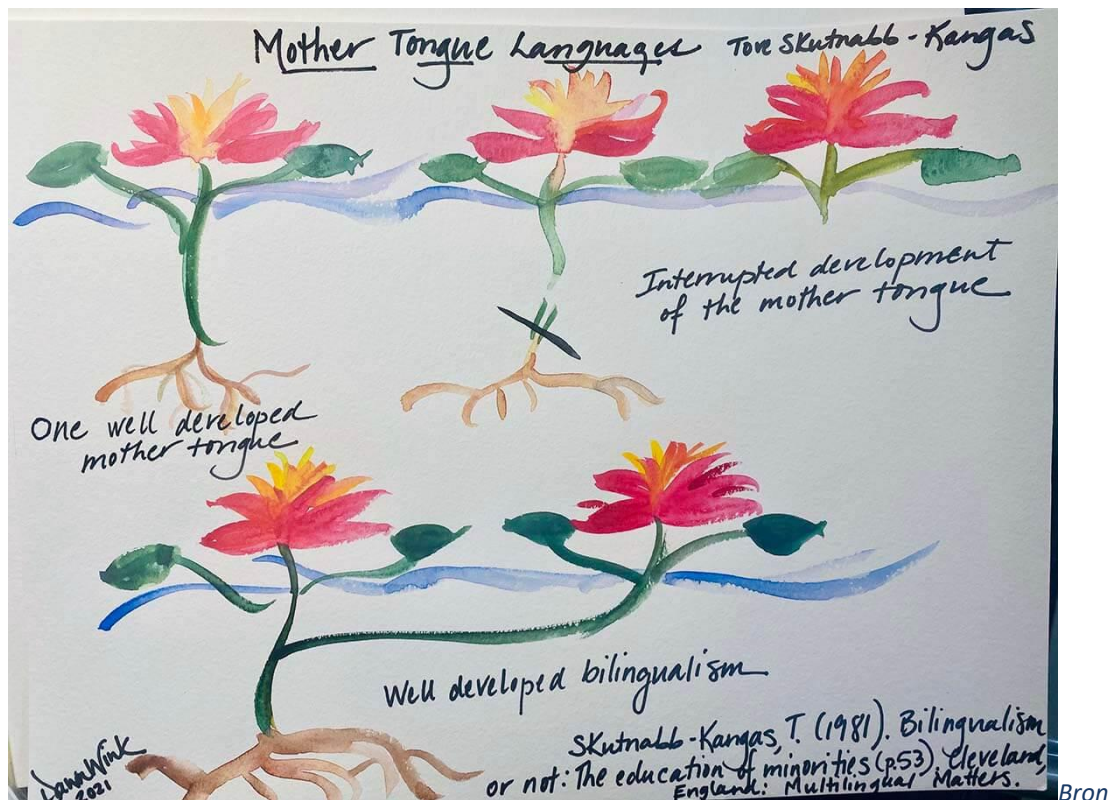 Mother Tongue Languages Tove Skutnabb-Kangas
Interrupted development
of the mother tongue
One well developed
mother tongue
Well developed bilingualism
Skutnabb-Kangas, T. (1981). Bilingualism
or not: The education of minorities (p.53). Cleveland,
England: Multilingual Matters.
Dawn Wink
2021
Bron